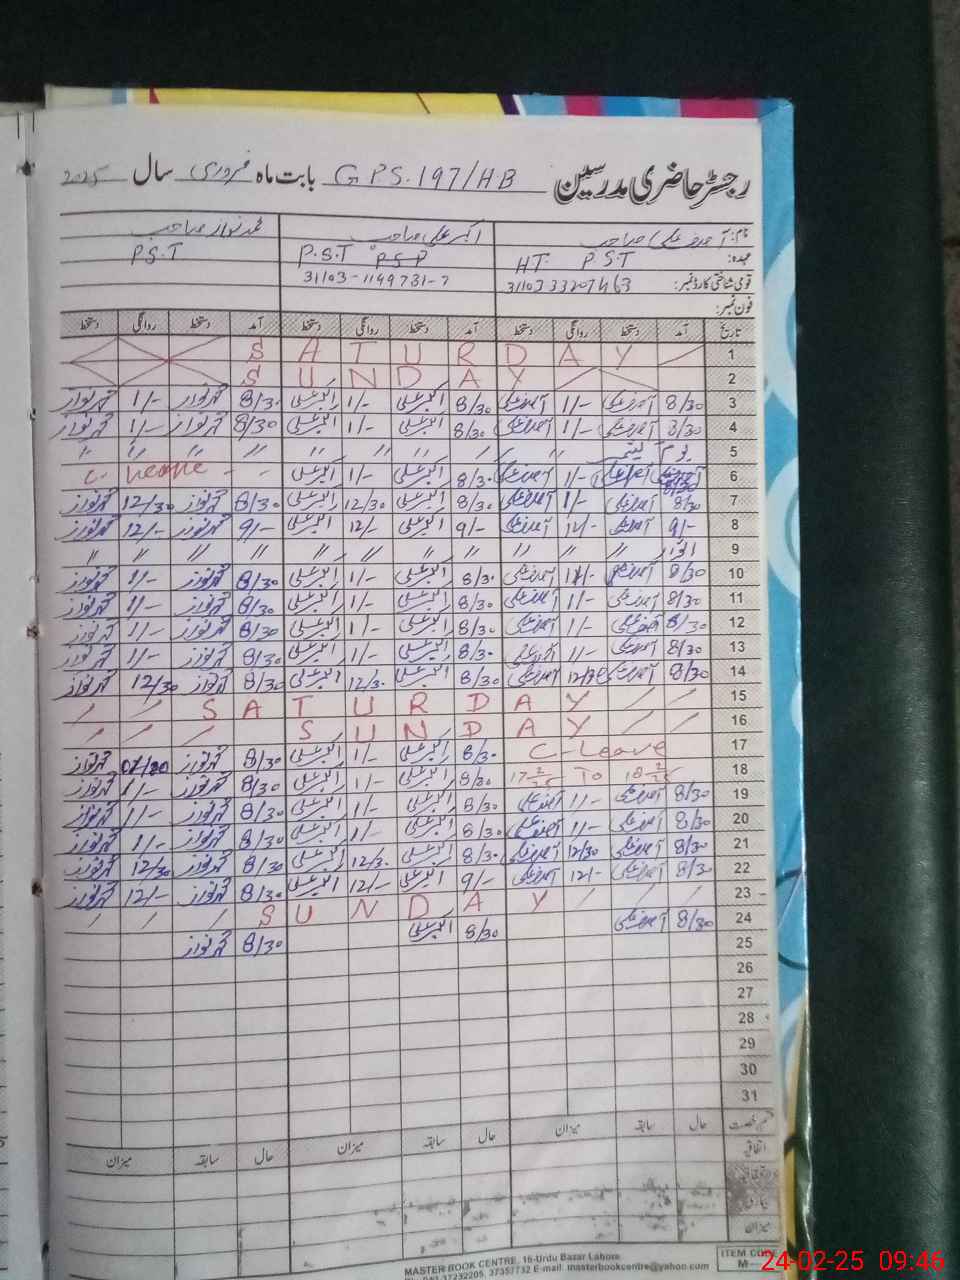 رجسٹر حاضری مدرسین G.P.S. 197/HB بابت ماہ فروری سال 2025
نام: آصف علی صاحب اکبر علی صاحب محمد نواز صاحب
عہدہ: HT. P.S.T P.S.T P.S.T
قومی شناختی کارڈ نمبر: 31103-1149731-7
فون نمبر:
تاریخ آمد دستخط روانگی دستخط آمد دستخط روانگی دستخط آمد دستخط روانگی دستخط
1 S A T U R D A Y
2 S U N D A Y
3 8/30 1/- 8/30 اکبر علی 1/- اکبر علی 8/30 محمد نواز 1/- محمد نواز
4 8/30 1/- 8/30 اکبر علی 1/- اکبر علی 8/30 محمد نواز 1/- محمد نواز
5 یوم کشمیر " " " " " " " " "
6 1/- 8/30 اکبر علی 1/- اکبر علی C. Leave
7 8/30 1/- 8/30 اکبر علی 12/30 اکبر علی 8/30 محمد نواز 12/30 محمد نواز
8 9/- 12/- 9/- اکبر علی 12/- اکبر علی 9/- محمد نواز 12/- محمد نواز
9 اتوار " " " " " " " " " "
10 8/30 1/- 8/30 اکبر علی 1/- اکبر علی 8/30 محمد نواز 1/- محمد نواز
11 8/30 1/- 8/30 اکبر علی 1/- اکبر علی 8/30 محمد نواز 1/- محمد نواز
12 8/30 1/- 8/30 اکبر علی 1/- اکبر علی 8/30 محمد نواز 1/- محمد نواز
13 8/30 1/- 8/30 اکبر علی 1/- اکبر علی 8/30 محمد نواز 1/- محمد نواز
14 8/30 12/30 8/30 اکبر علی 12/30 اکبر علی 8/30 محمد نواز 12/30 محمد نواز
15 S A T U R D A Y
16 S U N D A Y
17 C-Leave 8/30 اکبر علی 1/- اکبر علی 8/30 محمد نواز محمد نواز
18 17-2-25 To 18-2-25 8/30 اکبر علی 1/- اکبر علی 8/30 محمد نواز 1/- محمد نواز
19 8/30 1/- 8/30 اکبر علی 1/- اکبر علی 8/30 محمد نواز 1/- محمد نواز
20 8/30 1/- 8/30 اکبر علی 1/- اکبر علی 8/30 محمد نواز 1/- محمد نواز
21 8/30 12/30 8/30 اکبر علی 12/30 اکبر علی 8/30 محمد نواز 12/30 محمد نواز
22 8/30 12/- 9/- اکبر علی 12/- اکبر علی 8/30 محمد نواز 12/- محمد نواز
23 S U N D A Y
24 8/30 8/30 اکبر علی 8/30 محمد نواز
25
26
27
28
29
30
31
قسم رخصت حال سابقہ میزان حال سابقہ میزان حال سابقہ میزان
اتفاقیہ
میزان
MASTER BOOK CENTRE, 16-Urdu Bazar Lahore
37357732 E-mail: masterbookcentre@yahoo.com
ITEM CODE
24-02-25 09:46